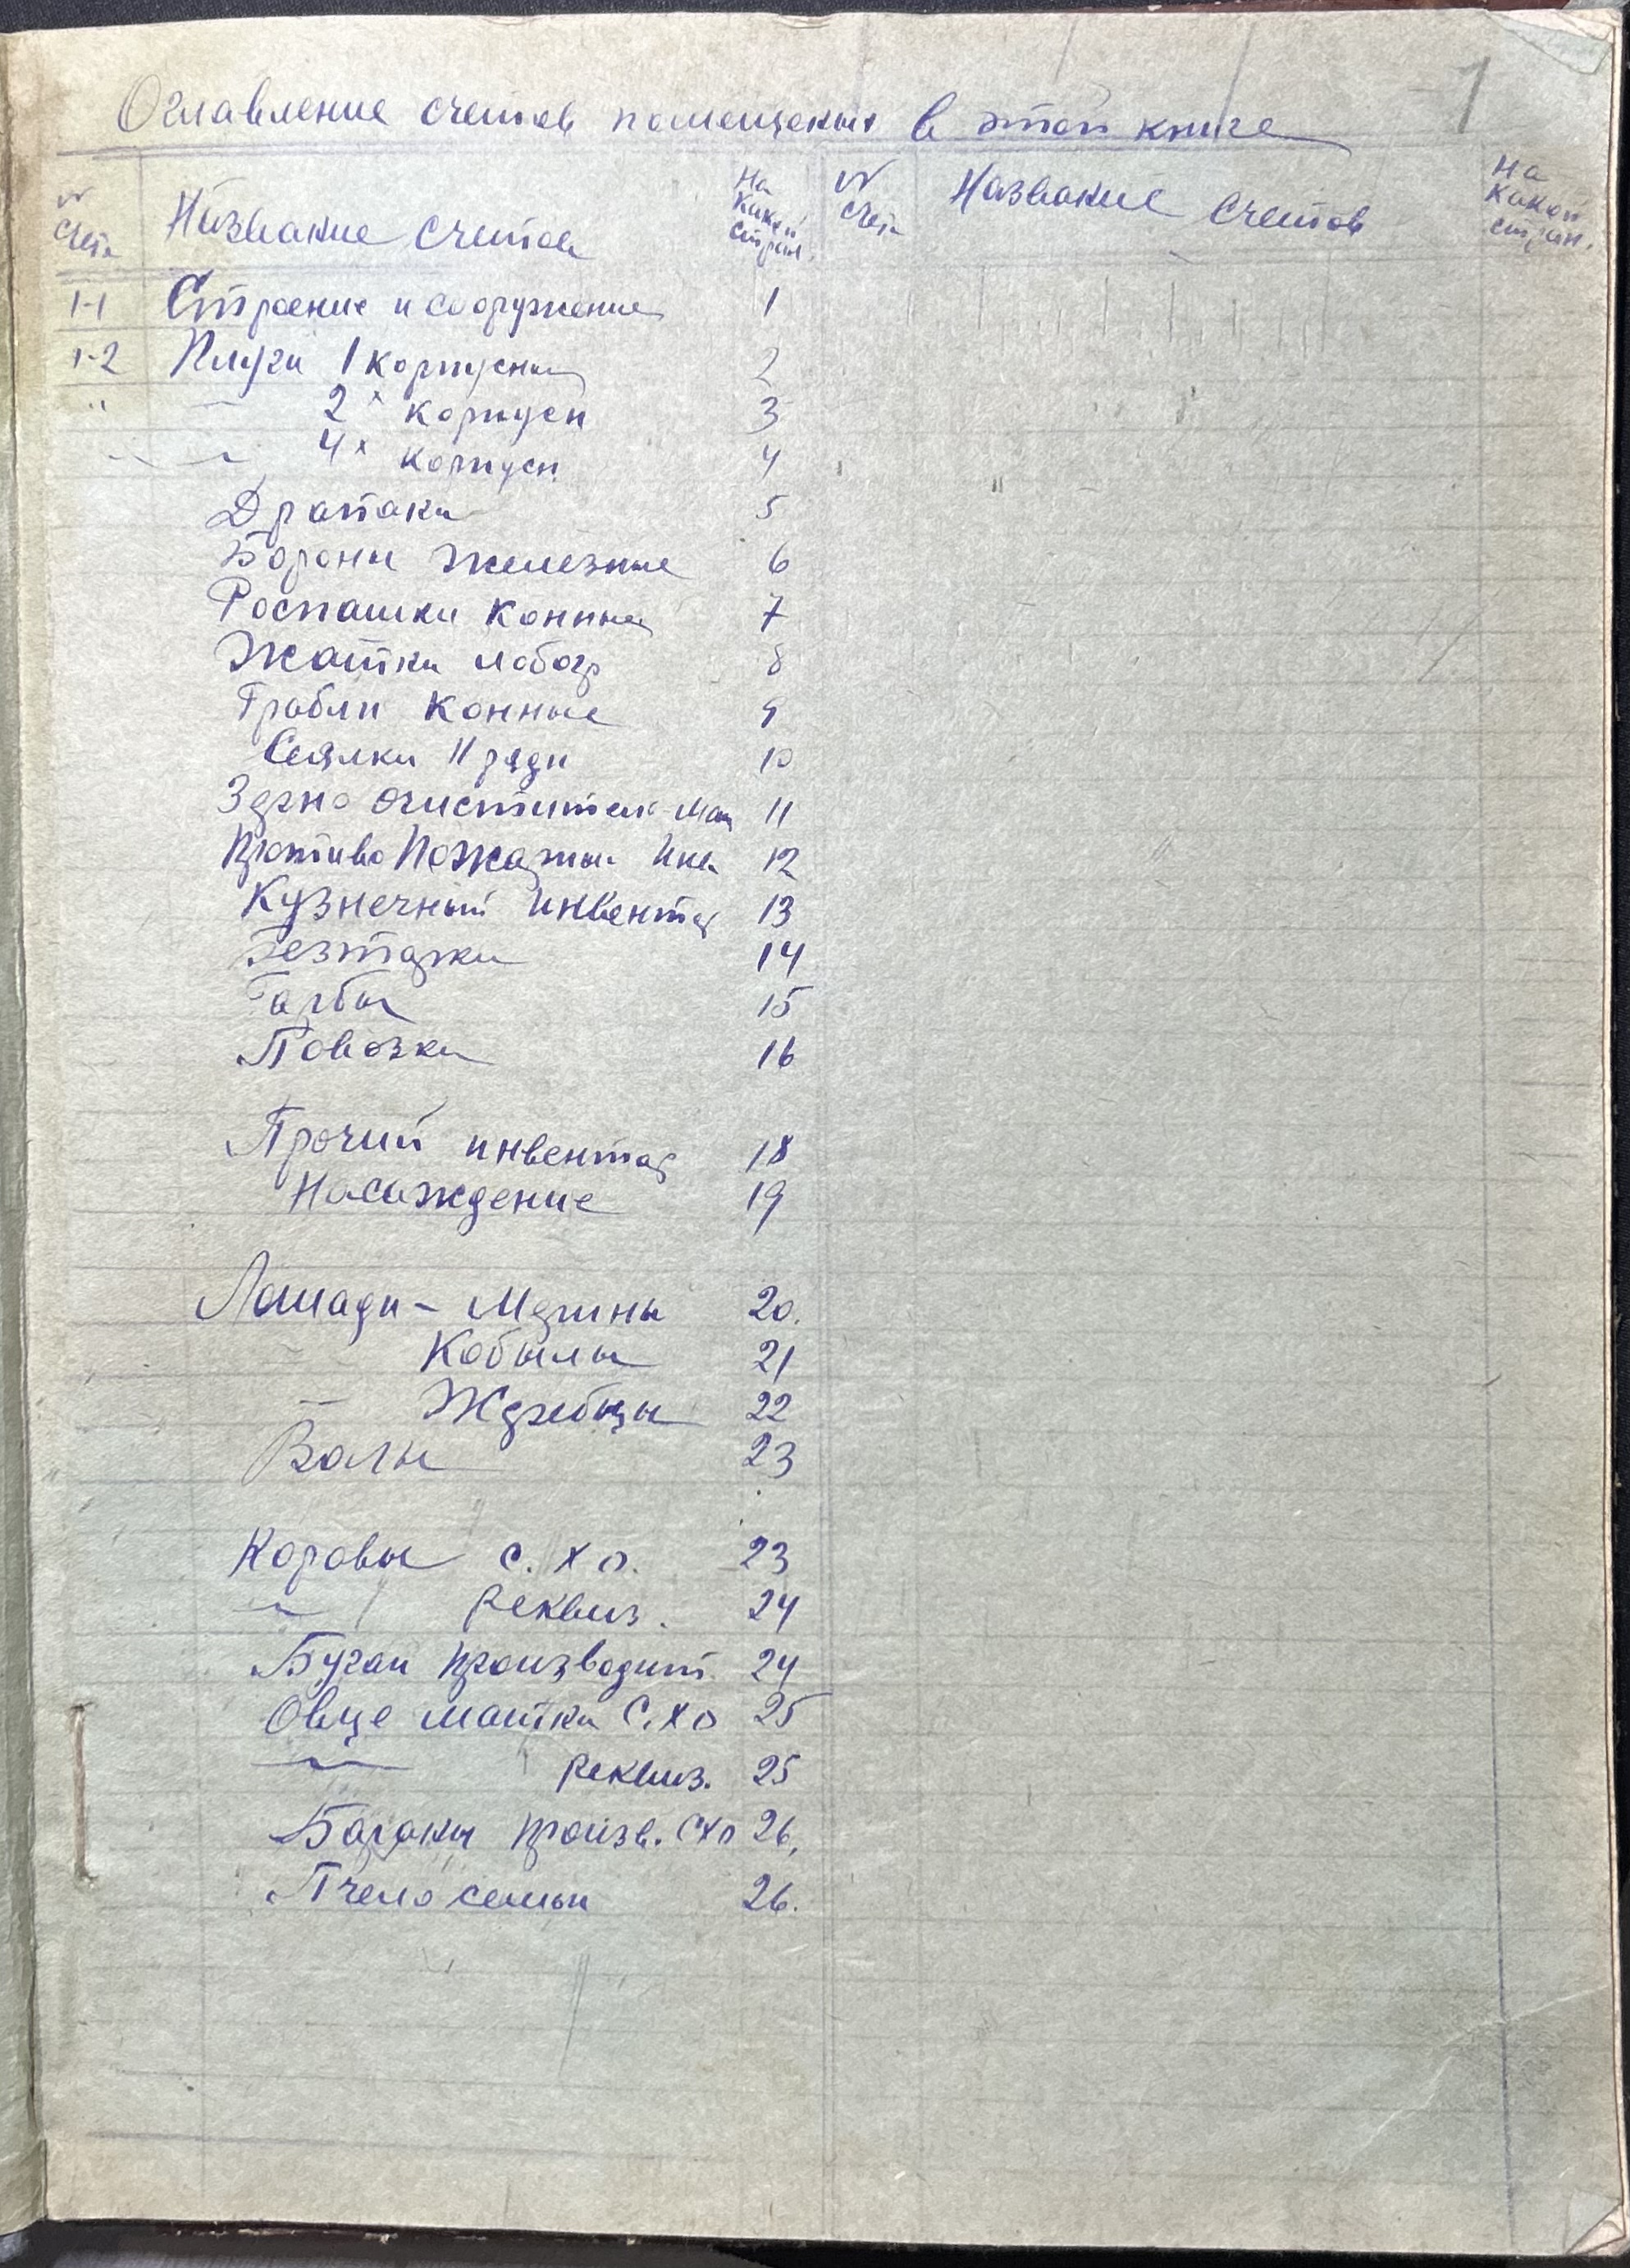 1
Оглавление счетов помещеных в этой книге
№ счета Название счетов На какой стран. № счета Название счетов На какой стран.
1-1 Строение и сооружение 1
1-2 Плуги 1 корпусны 2
" — 2х корпусн 3
" — 4х корпусн 4
Драпаки 5
Борони железные 6
Роспашки конные 7
Жатки лобогр 8
Грабли конные 9
Сеялки 11 рядн 10
Зерно очистител маш 11
Противо Пожарный Инв 12
Кузнечный инвентар 13
Безтарки 14
Гарбы 15
Повозки 16
Прочий инвентар 18
Насаждение 19
Лошади - Мерины 20.
— Кобылы 21
— Жеребцы 22
Волы 23
Коровы с.хо. 23
— реквиз. 24
Бугаи производит. 24
Овце матки С.хо 25
— реквиз. 25
Бараны произв. СХО 26.
Пчело семьи 26.